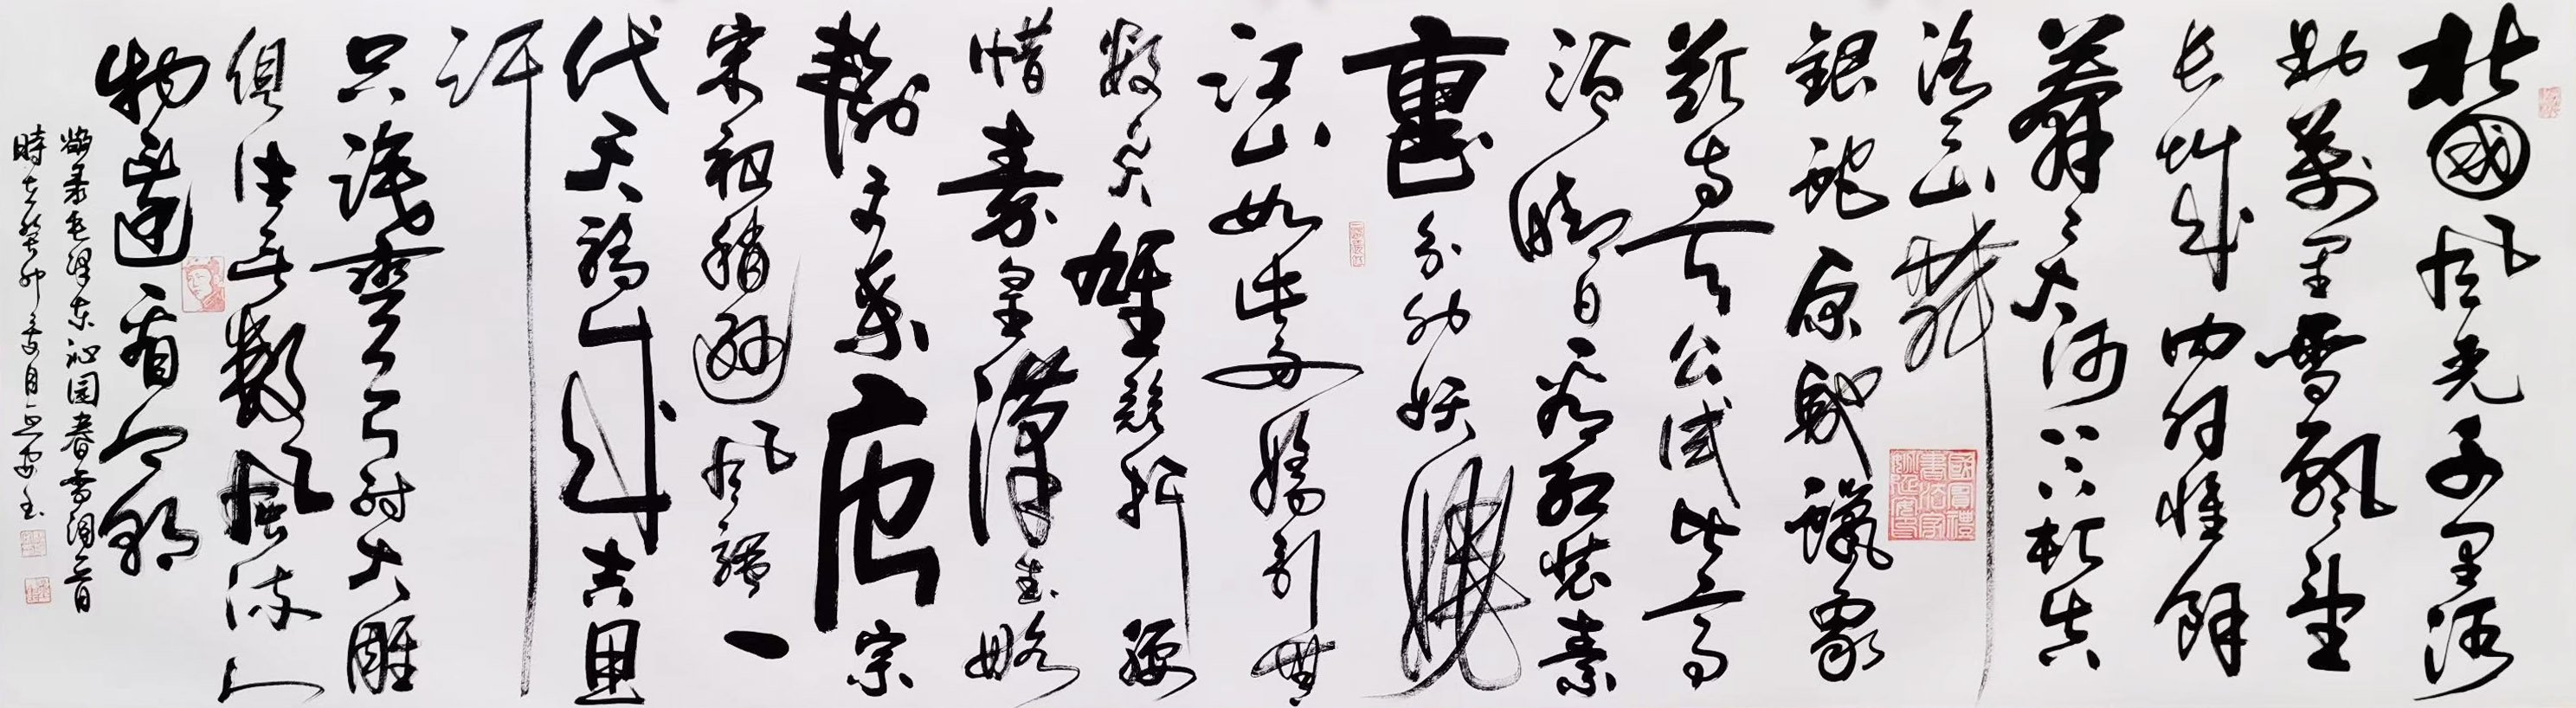 北國风光千里冰
封萬里雪飘望
长城内外惟餘
莽々大河上下顿失
滔々山舞
银蛇原驰蠟象
欲与天公试比高
须晴日看红装素
裹分外妖娆
江山如此多嬌引無
数英雄競折腰
惜秦皇漢武略
输文采唐宗
宋祖稍逊风骚一
代天骄成吉思
汗
只識弯弓射大雕
俱往矣數風流人
物還看今朝
录毛泽东沁园春雪词一首
時在癸卯夏月